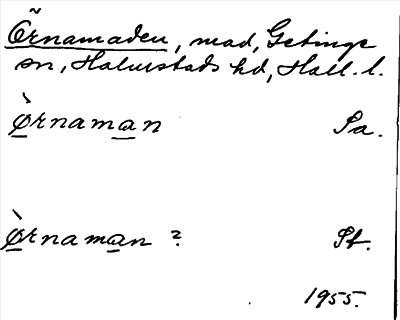 Örnamaden, mad, Getinge
sn, Halmstads hd, Hall. l.
ø̀rnaman Sa.
ø̀rnaman ? St.
1955.